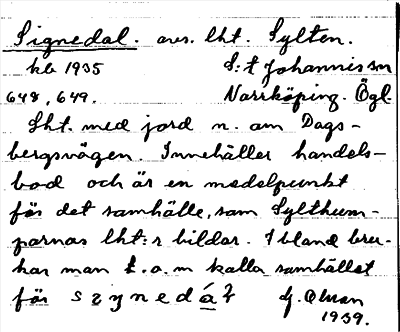 Signedal. avs. lht. Sylten.
kb 1935 S:t Johannis sn
648, 649. Norrköping. Ögl.
Lht. med jord n. om Dags-
bergsvägen. Innehåller handels-
bod och är en medelpunkt
för det samhälle, som Sylthum-
parnas lht:r bildar. Ibland bru-
kar man t.o.m kalla samhället
för
1939.